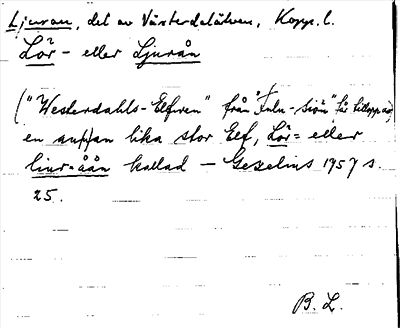 Ljuran, del av Västerdalälven, Kopp. l.
Lör- eller Ljurån
("Westerdahls-Elfven" från "Fulu-Siön" får tillopp av)
en annan lika stor Elf, Lör= eller
liur=åån kallad — Gezelius 1757 s.
25.
B. L.